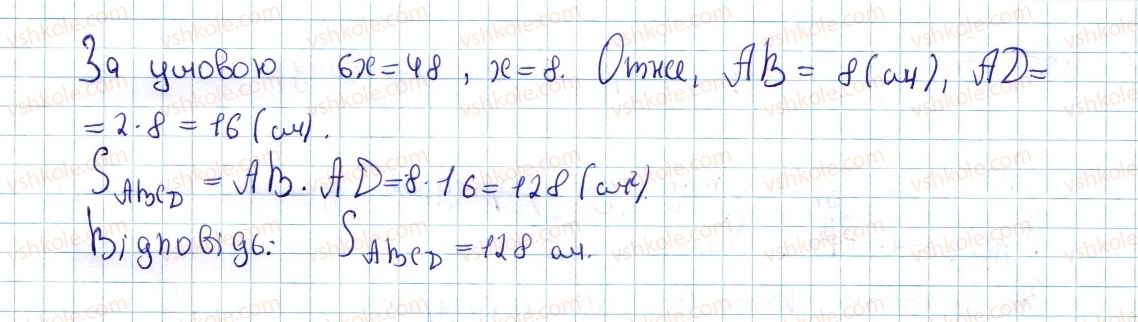 За умовою 6x=48, x=8. Отже, AB = 8(см), AD=
=2·8=16(см).
S_ABCD = AB · AD=8·16=128(см²).
Відповідь: S_ABCD=128 см.